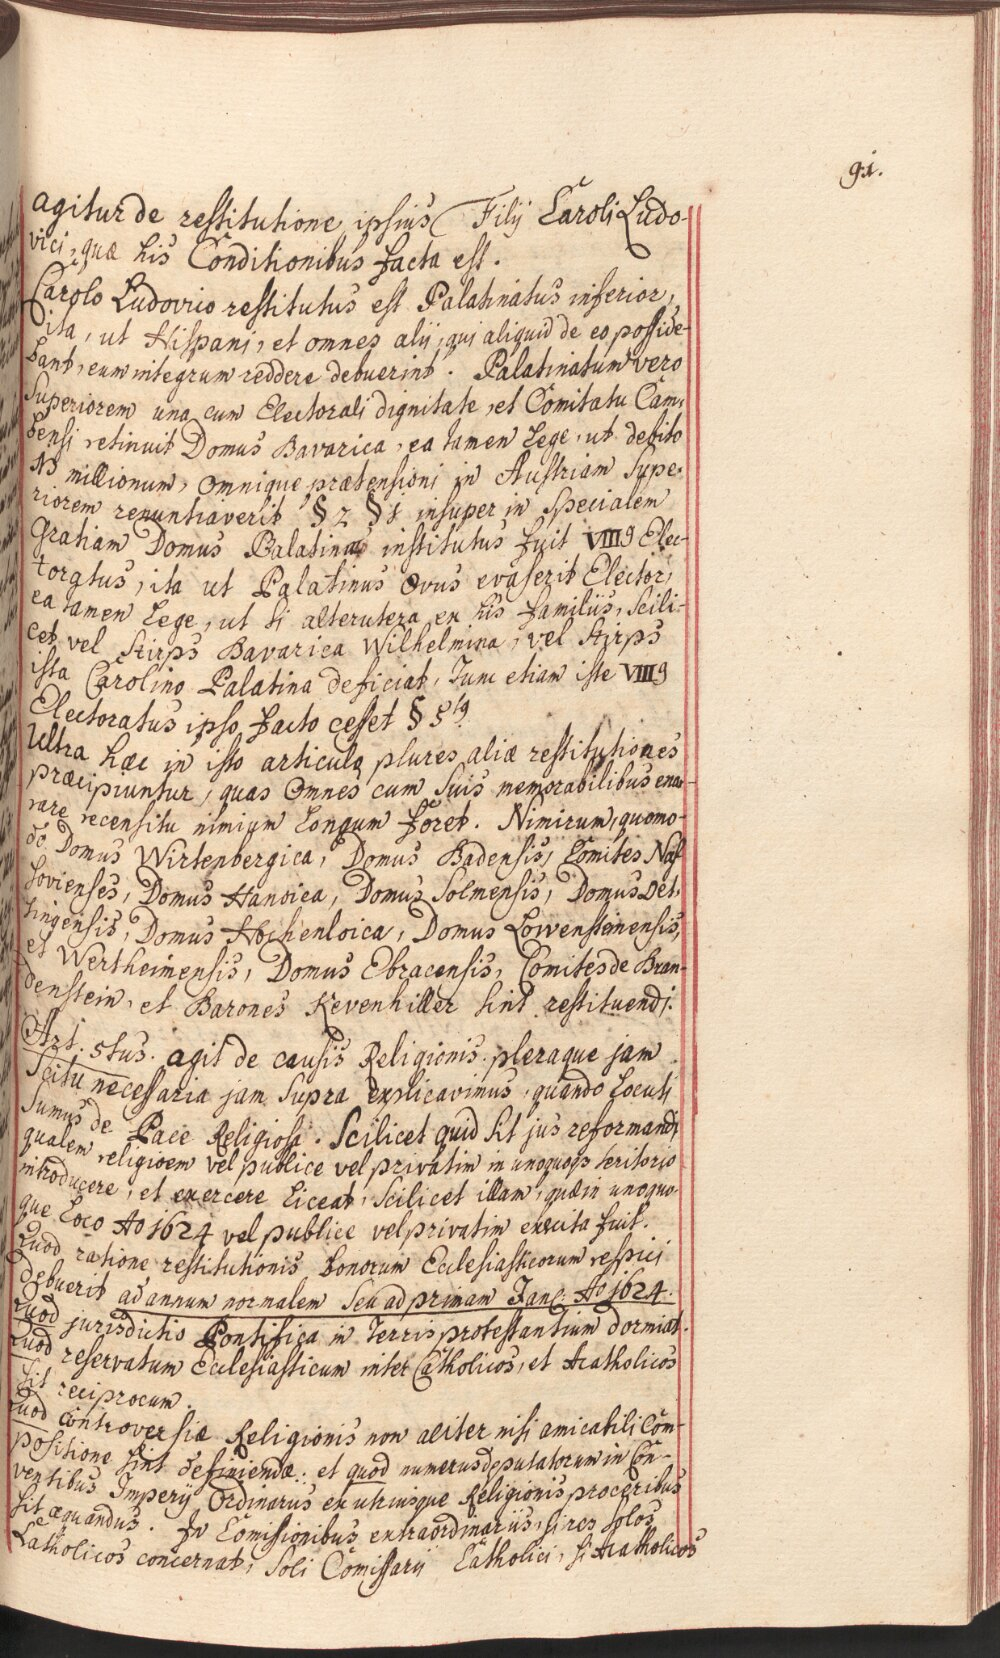 91.
agitur de restitutione ipsius Filij Caroli Ludo-
vici, quæ his Conditionibus facta est.
Carolo Ludovico restitutus est Palatinatus inferior,
ita, ut Hispani, et omnes alij, qui aliquid de eo posside-
bant, eum integrum reddere debuerint. Palatinatum vero
Superiorem una cum Electorali dignitate, et Comitatu Cam-
bensi retinuit Domus Bavarica, ea tamen Lege, ut debito
13 millionum, omnique prætensioni in Austriam Supe-
riorem renuntiaverit § 2 § insuper in Specialem
Gratiam Domus Palatinæ institutus fuit VIII9 Elec-
toratus, ita ut Palatinus 8vus evaserit Elector,
ea tamen Lege, ut si alterutera ex his familiis, Scili-
cet vel Stirps Bavarica Wilhelmina, vel Stirps
ista Carolino Palatina deficiat, Tunc etiam iste VIII9
Electoratus ipso facto cesset § 5t9.
Ultra hæc in isto articulo plures aliæ restitutiones
præcipiuntur, quas Omnes cum Suis memorabilibus enar-
rare recensitu nimium Longum foret. Nimirum, quomo-
do Domus Wirtenbergica, Domus Badensis, Comites Nas-
sovienses, Domus Hanoica, Domus Solmensis, Domus Oet-
tingensis, Domus Hochenloica, Domus Lowensteinensis,
et Wertheimensis, Domus Ebracensis, Comites de Bran-
denstein, et Barones Kevenhiller sint restituendi.
Art. 5tus. agit de causis Religionis pleraque jam
Scitu necessaria jam Supra explicavimus, quando Locuti
Sumus de Pace Religiosa. Scilicet quid sit jus reformandi
qualem religioem vel publice vel privatim in unoquoqs teritorio
introducere, et exercere Liceat, Scilicet illam, quæ in unoquo-
que Loco Ao 1624 vel publice vel privatim exercita fuit.
Quod ratione restitutionis bonorum Ecclesiasticorum respici
debuerit ad annum normalem Seu ad primam Janr: Ao 1624.
Quod jurisdictio Pontifica in Terris protestantium dormiat.
Quod reservatum Ecclesiasticum inter Catholicos, et Acatholicos
sit reciprocum.
Quod controversiæ Religionis non aliter nisi amicabili Com-
positione sint definiendæ: et quod numerus deputatorum in Con-
ventibus Imperij Ordinarus ex utriusque Religionis proceribus
sit æquandus. In Comissionibus extraordinariis, si res solos
Catholicos concernat, Soli Comissarij Catholici, si Acatholicos